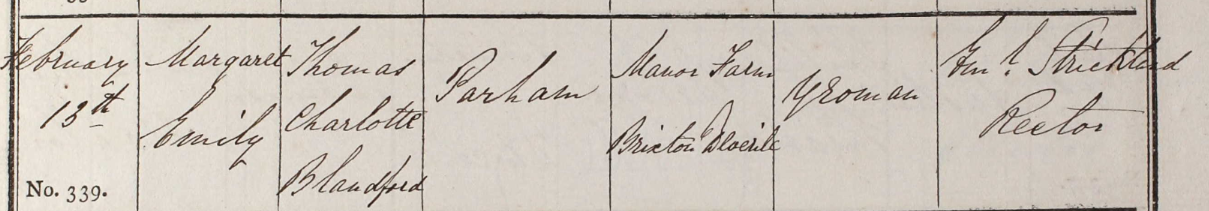 February
13th
No. 339.
Margaret
Emily
Thomas
Charlotte
Blandford
Parham
Manor Farm
Brixton Deverill
Yeoman
Strickland
Rector